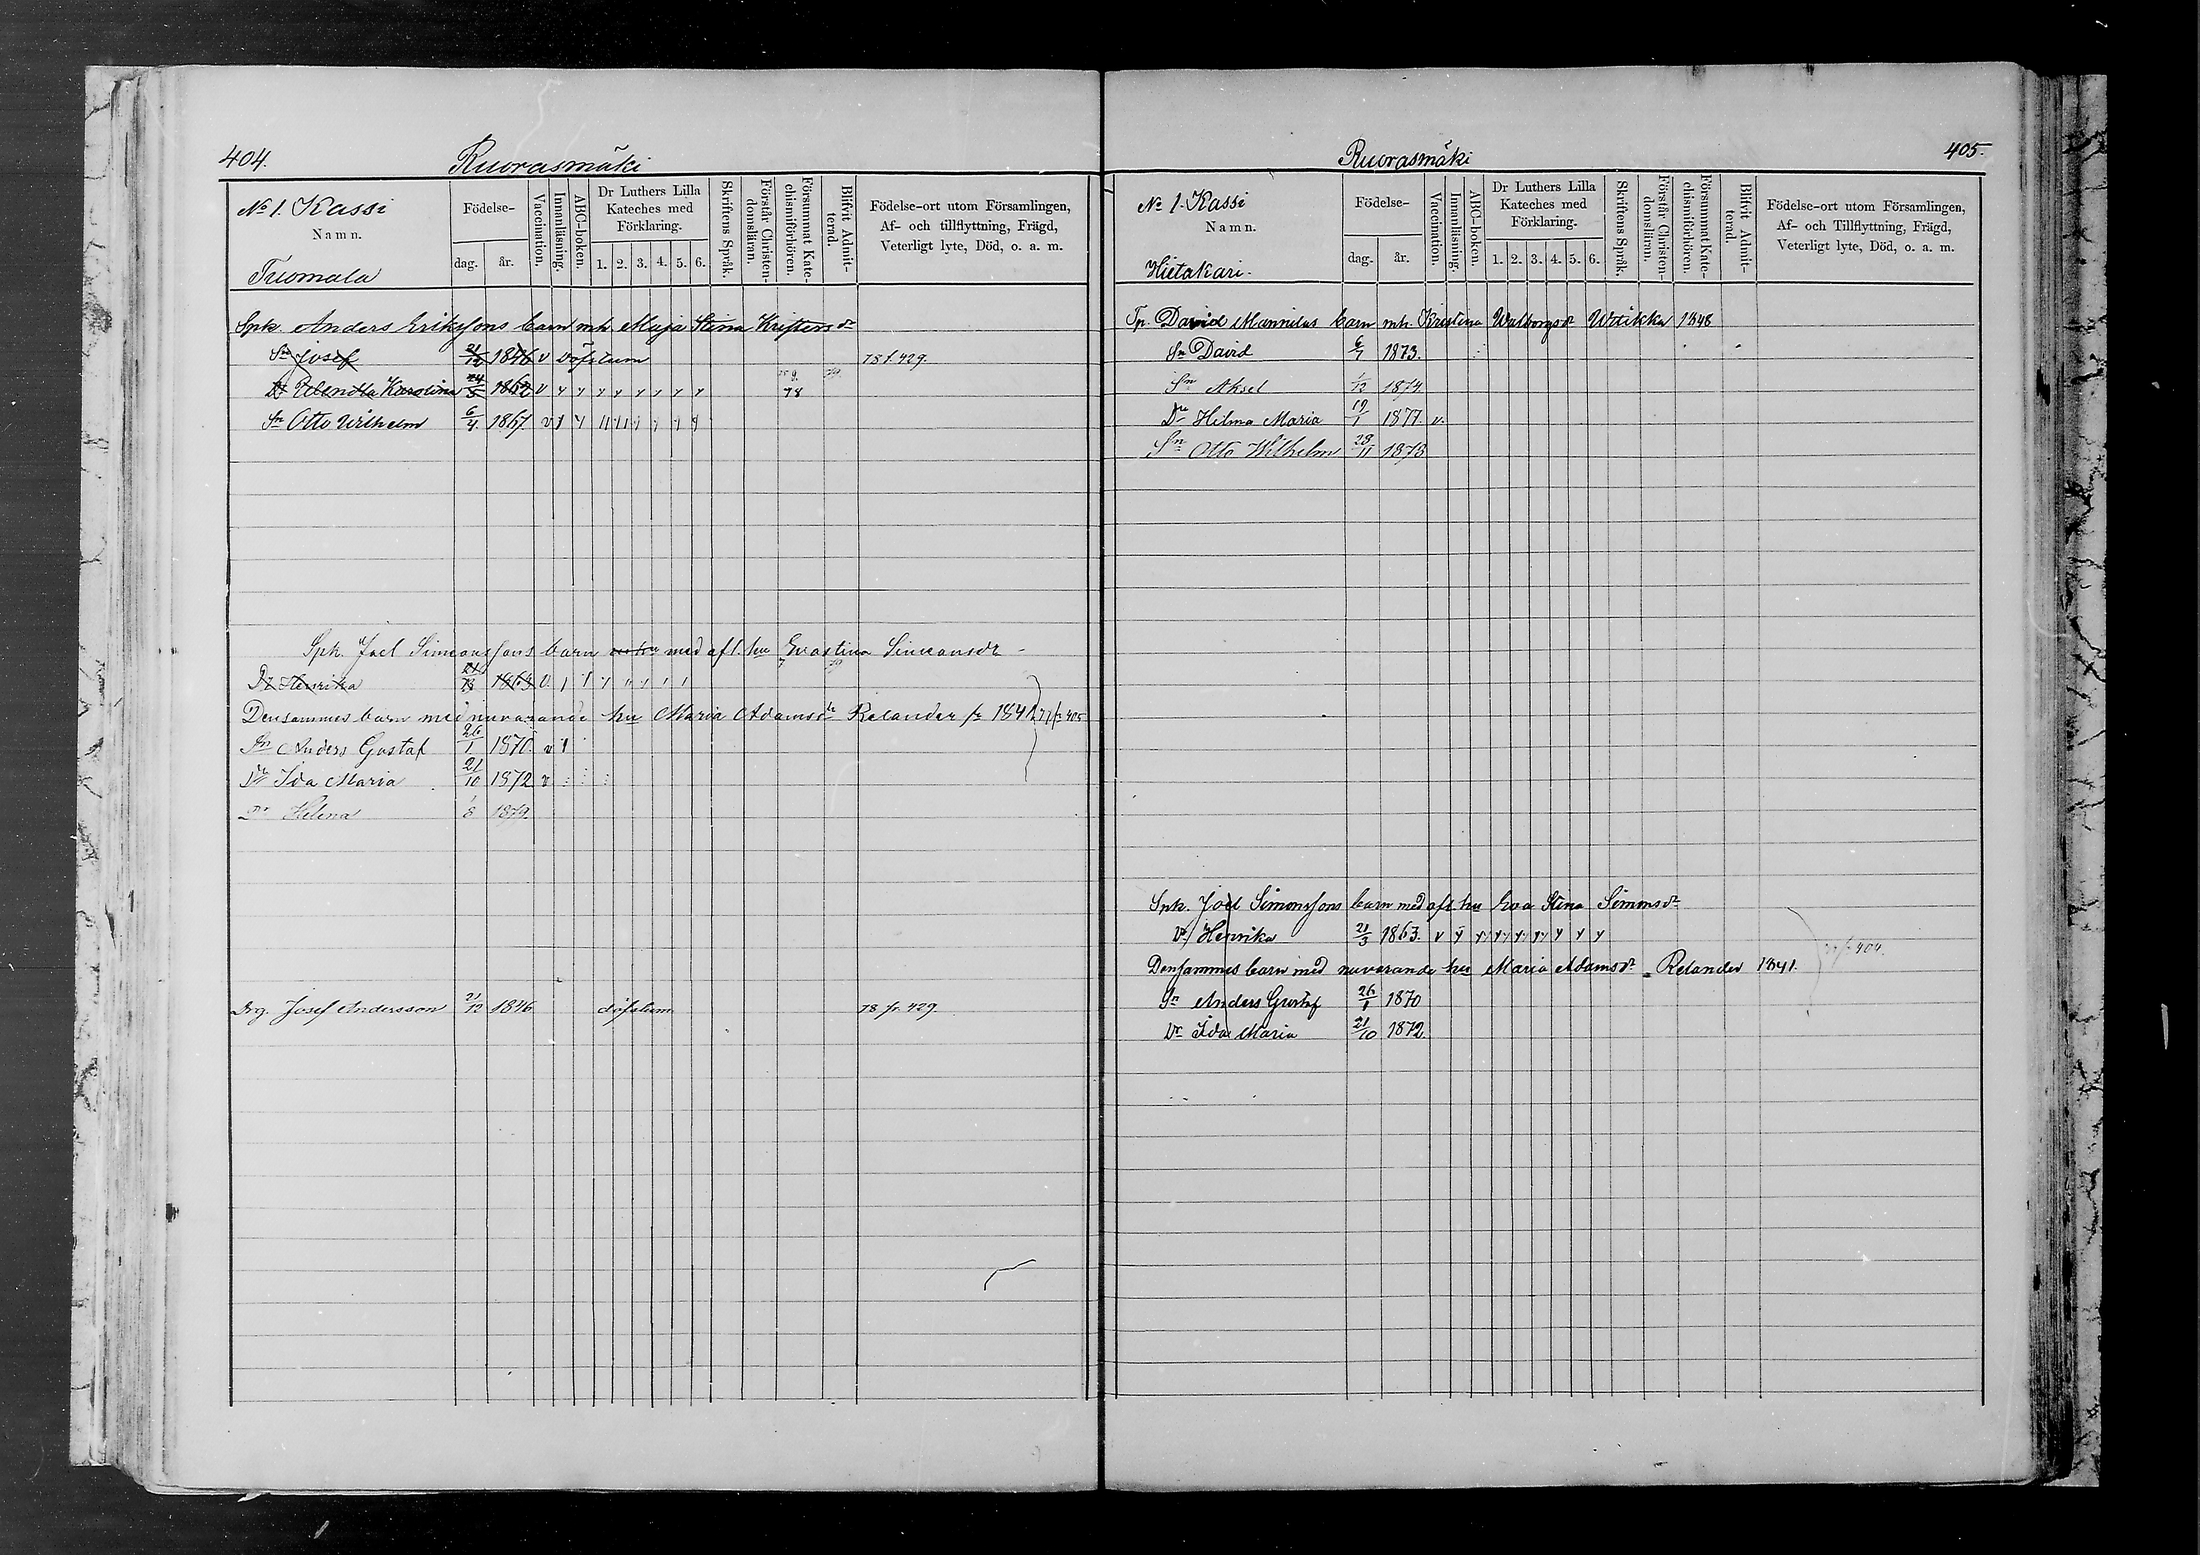 404.
Ruorasmäki
No 1. Kassi
Namn.
Tuomala
Födelse-
dag.
år.
Vaccination.
Innanläsning.
ABC-boken.
Dr Luthers Lilla Kateches med Förklaring.
1. 2. 3. 4. 5. 6.
Skriftens Språk.
Förstår Christendomsläran.
Försummat Katechismiförhören.
Blifvit Admitterad.
Födelse-ort utom Församlingen,
Af- och tillflyttning, Frägd,
Veterligt lyte, Död, o. a. m.
Spk. Anders Erikssons barn mh. Maja Stina Kristersdr
Sn Josef 21/12 1846 v döfstum 78 f. 429.
Dr Karolina 24/5 1862 v y y y y y y y y 78
Sn Otto Wilhelm 6/4 1867 v
Spk. Joel Simonssons barn med afl. hu Evastina Simonsdr
Dr Henrika 21/3 1863
Densammes barn med nuvarande hu Maria Adamsdr Relander fr 1841 77/fr 405
Sn Anders Gustaf 26/1 1870 v
Dr Ida Maria 21/10 1872 v
Dr Helena 1/8 1879.
Drg. Josef Andersson 21/12 1846 döfstum 78 fr. 429.
405.
Ruorasmäki
No 1. Kassi
Namn.
Hietakari.
Födelse-
dag.
år.
Vaccination.
Innanläsning.
ABC-boken.
Dr Luthers Lilla Kateches med Förklaring.
1. 2. 3. 4. 5. 6.
Skriftens Språk.
Förstår Christendomsläran.
Försummat Katechismiförhören.
Blifvit Admitterad.
Födelse-ort utom Församlingen,
Af- och Tillflyttning, Frägd,
Veterligt lyte, Död, o. a. m.
Tp. David Mannelus barn mh. Kristina Walborgsdr Wotikka 1848
Sn David 6/7 1873.
Sn Aksel 1/12 1874
Dr Hilma Maria 19/1 1877. v.
Sn Otto Wilhelm 28/11 1878
Spk. Joel Simonssons barn med afl hu Eva Stina Simonsdr
Dr Henrika 21/3 1863. v y y y y y y y y
Densammes barn med nuvarande hu Maria Adamsdr Relander 1841. 77/fr 404.
Sn Anders Gustaf 26/1 1870
Dr Ida Maria 21/10 1872.